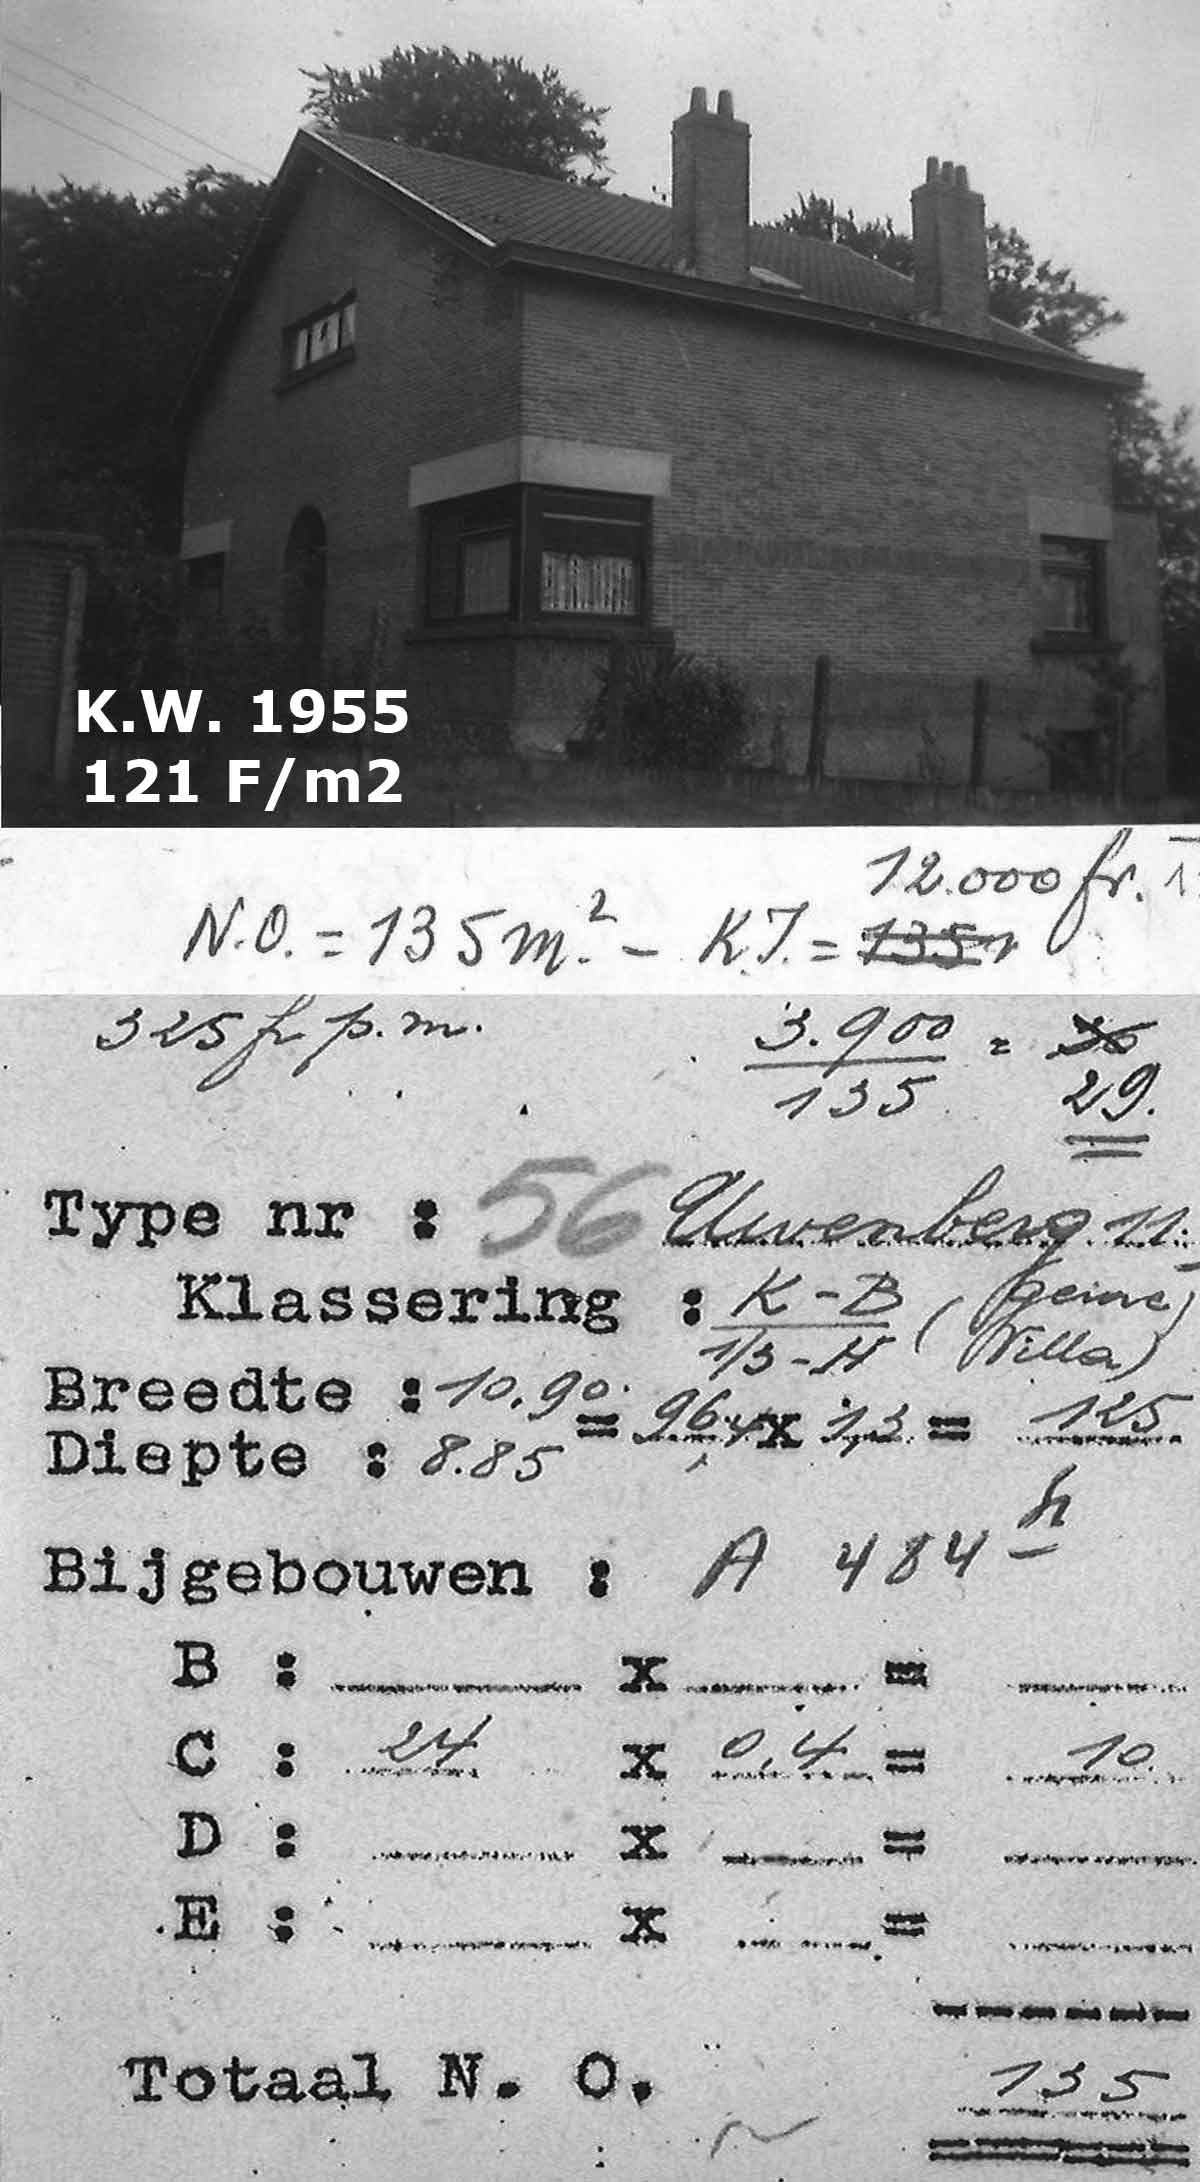 K.W. 1955
121 F/m2
12.000 fr.
N.O. = 135 m.² - K.I. = 135
325 fr p.m. 3.900 / 135 = 36 29.
Type nr : 56 Uwenberg 11.
Klassering : K-B / 1/3-H (genre Villa)
Breedte : 10.90
= 96,4 x 1,3 = 125
Diepte : 8.85
Bijgebouwen : A 484 h
B : x =
C : 24 x 0,4 = 10.
D : x =
E : x =
Totaal N. O. 135